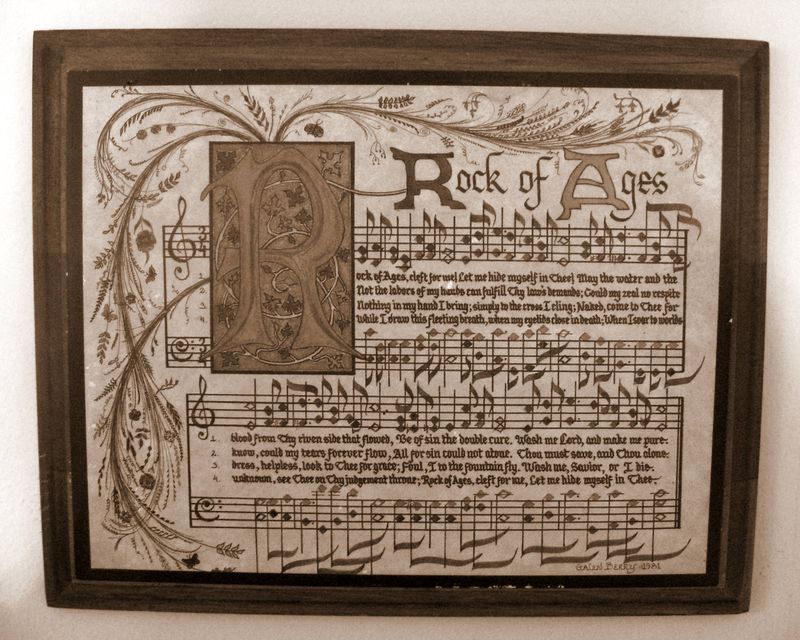 Rock of Ages
R
ock of Ages, cleft for me! Let me hide myself in Thee! May the water and the
Not the labors of my hands can fulfill Thy law's demands; Could my zeal no respite
Nothing in my hand I bring; simply to the cross I cling; Naked, come to Thee for
While I draw this fleeting breath, when my eyelids close in death; When I soar to worlds
1. blood from Thy riven side that flowed, Be of sin the double cure. Wash me Lord, and make me pure.
2. know, could my tears forever flow, All for sin could not atone. Thou must save, and Thou alone.
3. dress, helpless, look to Thee for grace; Foul, I to the fountain fly. Wash me, Savior, or I die.
4. unknown, see Thee on Thy judgement throne; Rock of Ages, cleft for me, Let me hide myself in Thee.
Galen Berry 1981